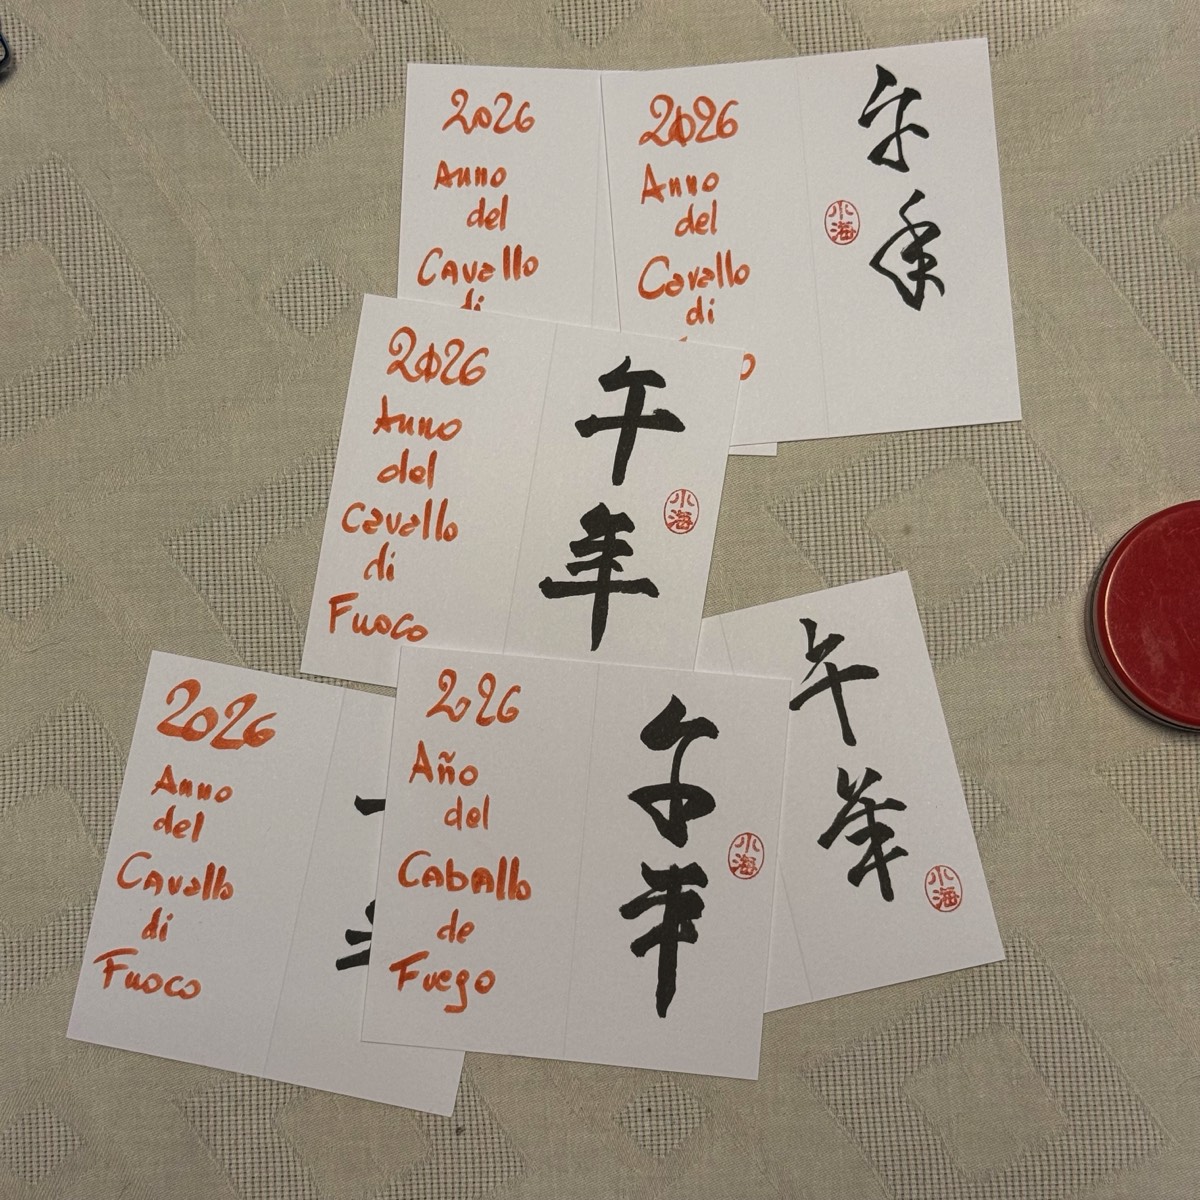 2026
Anno
del
Cavallo
di
2026
Anno
del
Cavallo
di
午
年
小
海
2026
Anno
del
Cavallo
di
Fuoco
午
年
小
海
2026
Anno
del
Cavallo
di
Fuoco
2026
Año
del
Caballo
de
Fuego
午
年
小
海
午
年
小
海